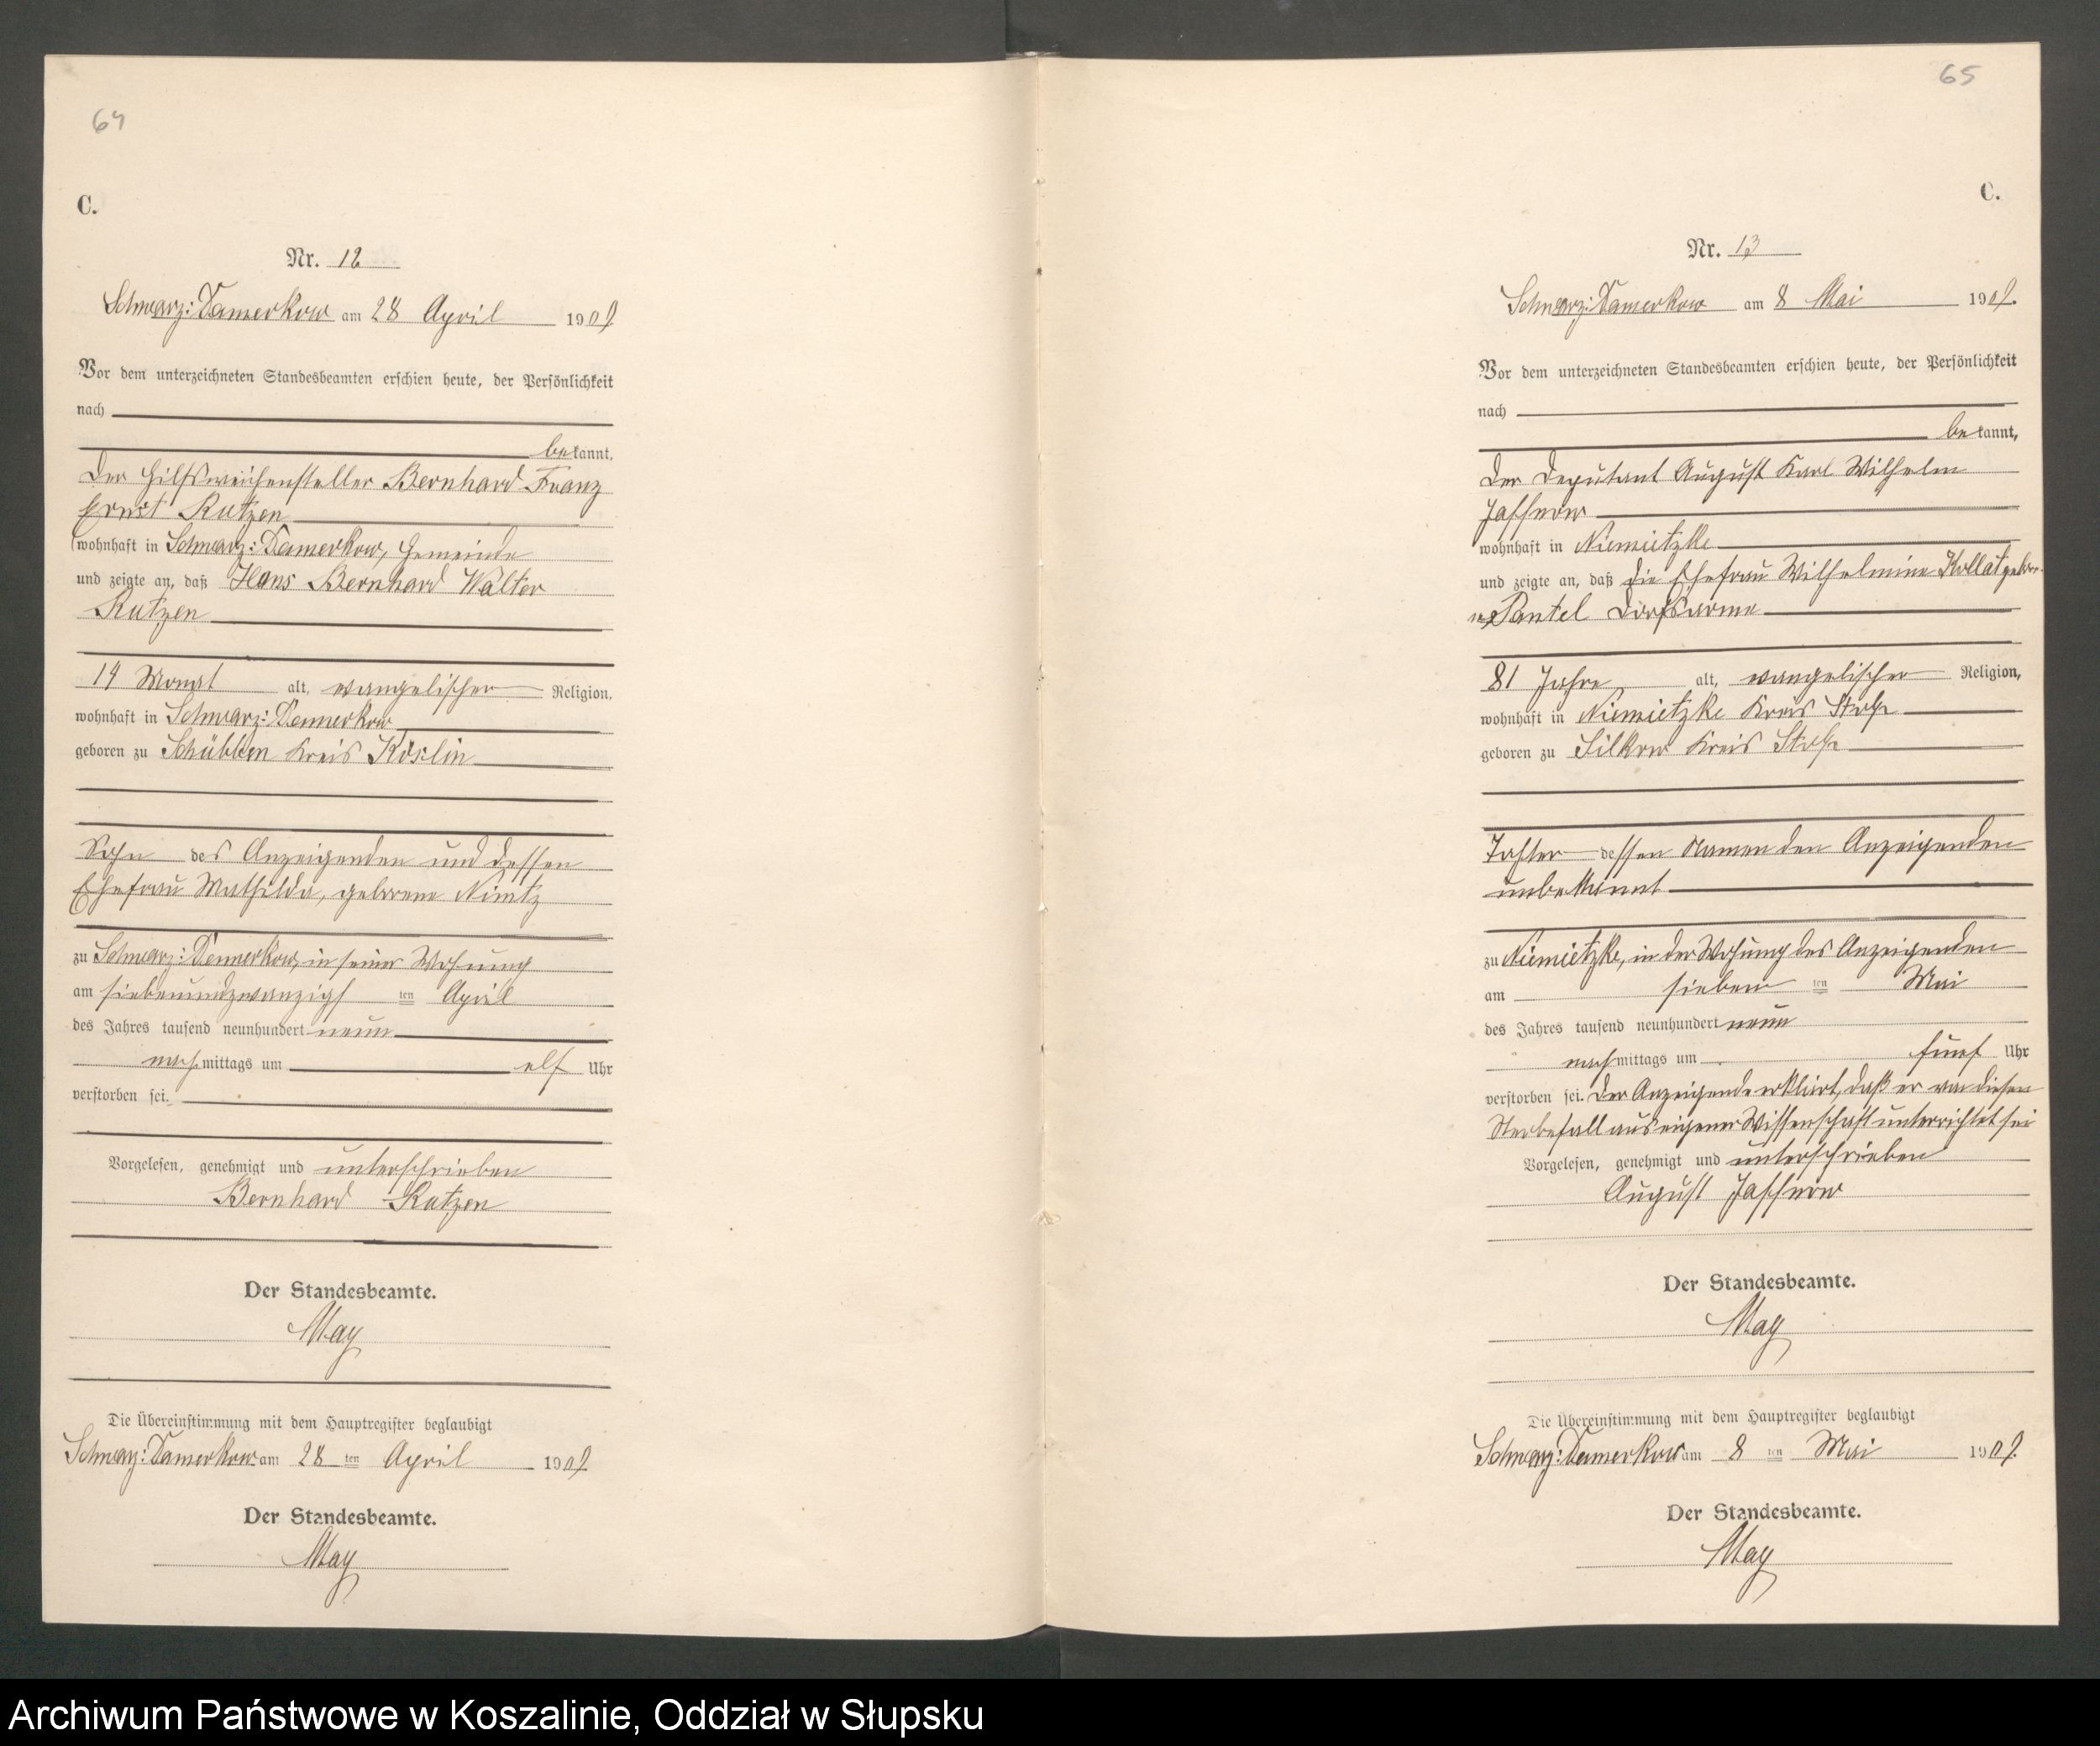 64
C.
Nr. 12
Schwarz-Damerkow am 28 April 1909
Vor dem unterzeichneten Standesbeamten erschien heute, der Persönlichkeit
nach
bekannt,
der Hilfsweichensteller Bernhard Franz
Ernst Rutzen
wohnhaft in Schwarz-Damerkow, Gemeinde
und zeigte an, daß Hans Bernhard Walter
Rutzen
14 Monat alt, evangelischer Religion,
wohnhaft in Schwarz-Damerkow
geboren zu Schübben Kreis Köslin
Sohn des Anzeigenden und dessen
Ehefrau Mathilde, geborene Nimtz
zu Schwarz-Damerkow, in seiner Wohnung
am siebenundzwanzigs ten April
des Jahres tausend neunhundert neun
nachmittags um elf Uhr
verstorben sei.
Vorgelesen, genehmigt und unterschrieben
Bernhard Rutzen
Der Standesbeamte.
May
Die Übereinstimmung mit dem Hauptregister beglaubigt
Schwarz-Damerkow am 28 ten April 1909
Der Standesbeamte.
May
65
C.
Nr. 13
Schwarz-Damerkow am 8 Mai 1909.
Vor dem unterzeichneten Standesbeamten erschien heute, der Persönlichkeit
nach
bekannt,
der Deputant August Karl Wilhelm
Jaschnow
wohnhaft in Niemietzke
und zeigte an, daß die Ehefrau Wilhelmine Kollat gebore-
ne Pantel Dorfsarme
81 Jahre alt, evangelischer Religion,
wohnhaft in Niemietzke Kreis Stolp
geboren zu Silkow Kreis Stolp
Tochter dessen Namen den Anzeigenden
unbekannt
zu Niemietzke, in der Wohnung des Anzeigenden
am sieben ten Mai
des Jahres tausend neunhundert neun
nachmittags um fünf Uhr
verstorben sei. Der Anzeigende erklärt, daß er von diesen
Sterbefall aus eigener Wissenschaft unterrichtet sei
Vorgelesen, genehmigt und unterschrieben
August Jaschnow
Der Standesbeamte.
May
Die Übereinstimmung mit dem Hauptregister beglaubigt
Schwarz-Damerkow am 8 ten Mai 1909.
Der Standesbeamte.
May
Archiwum Państwowe w Koszalinie, Oddział w Słupsku